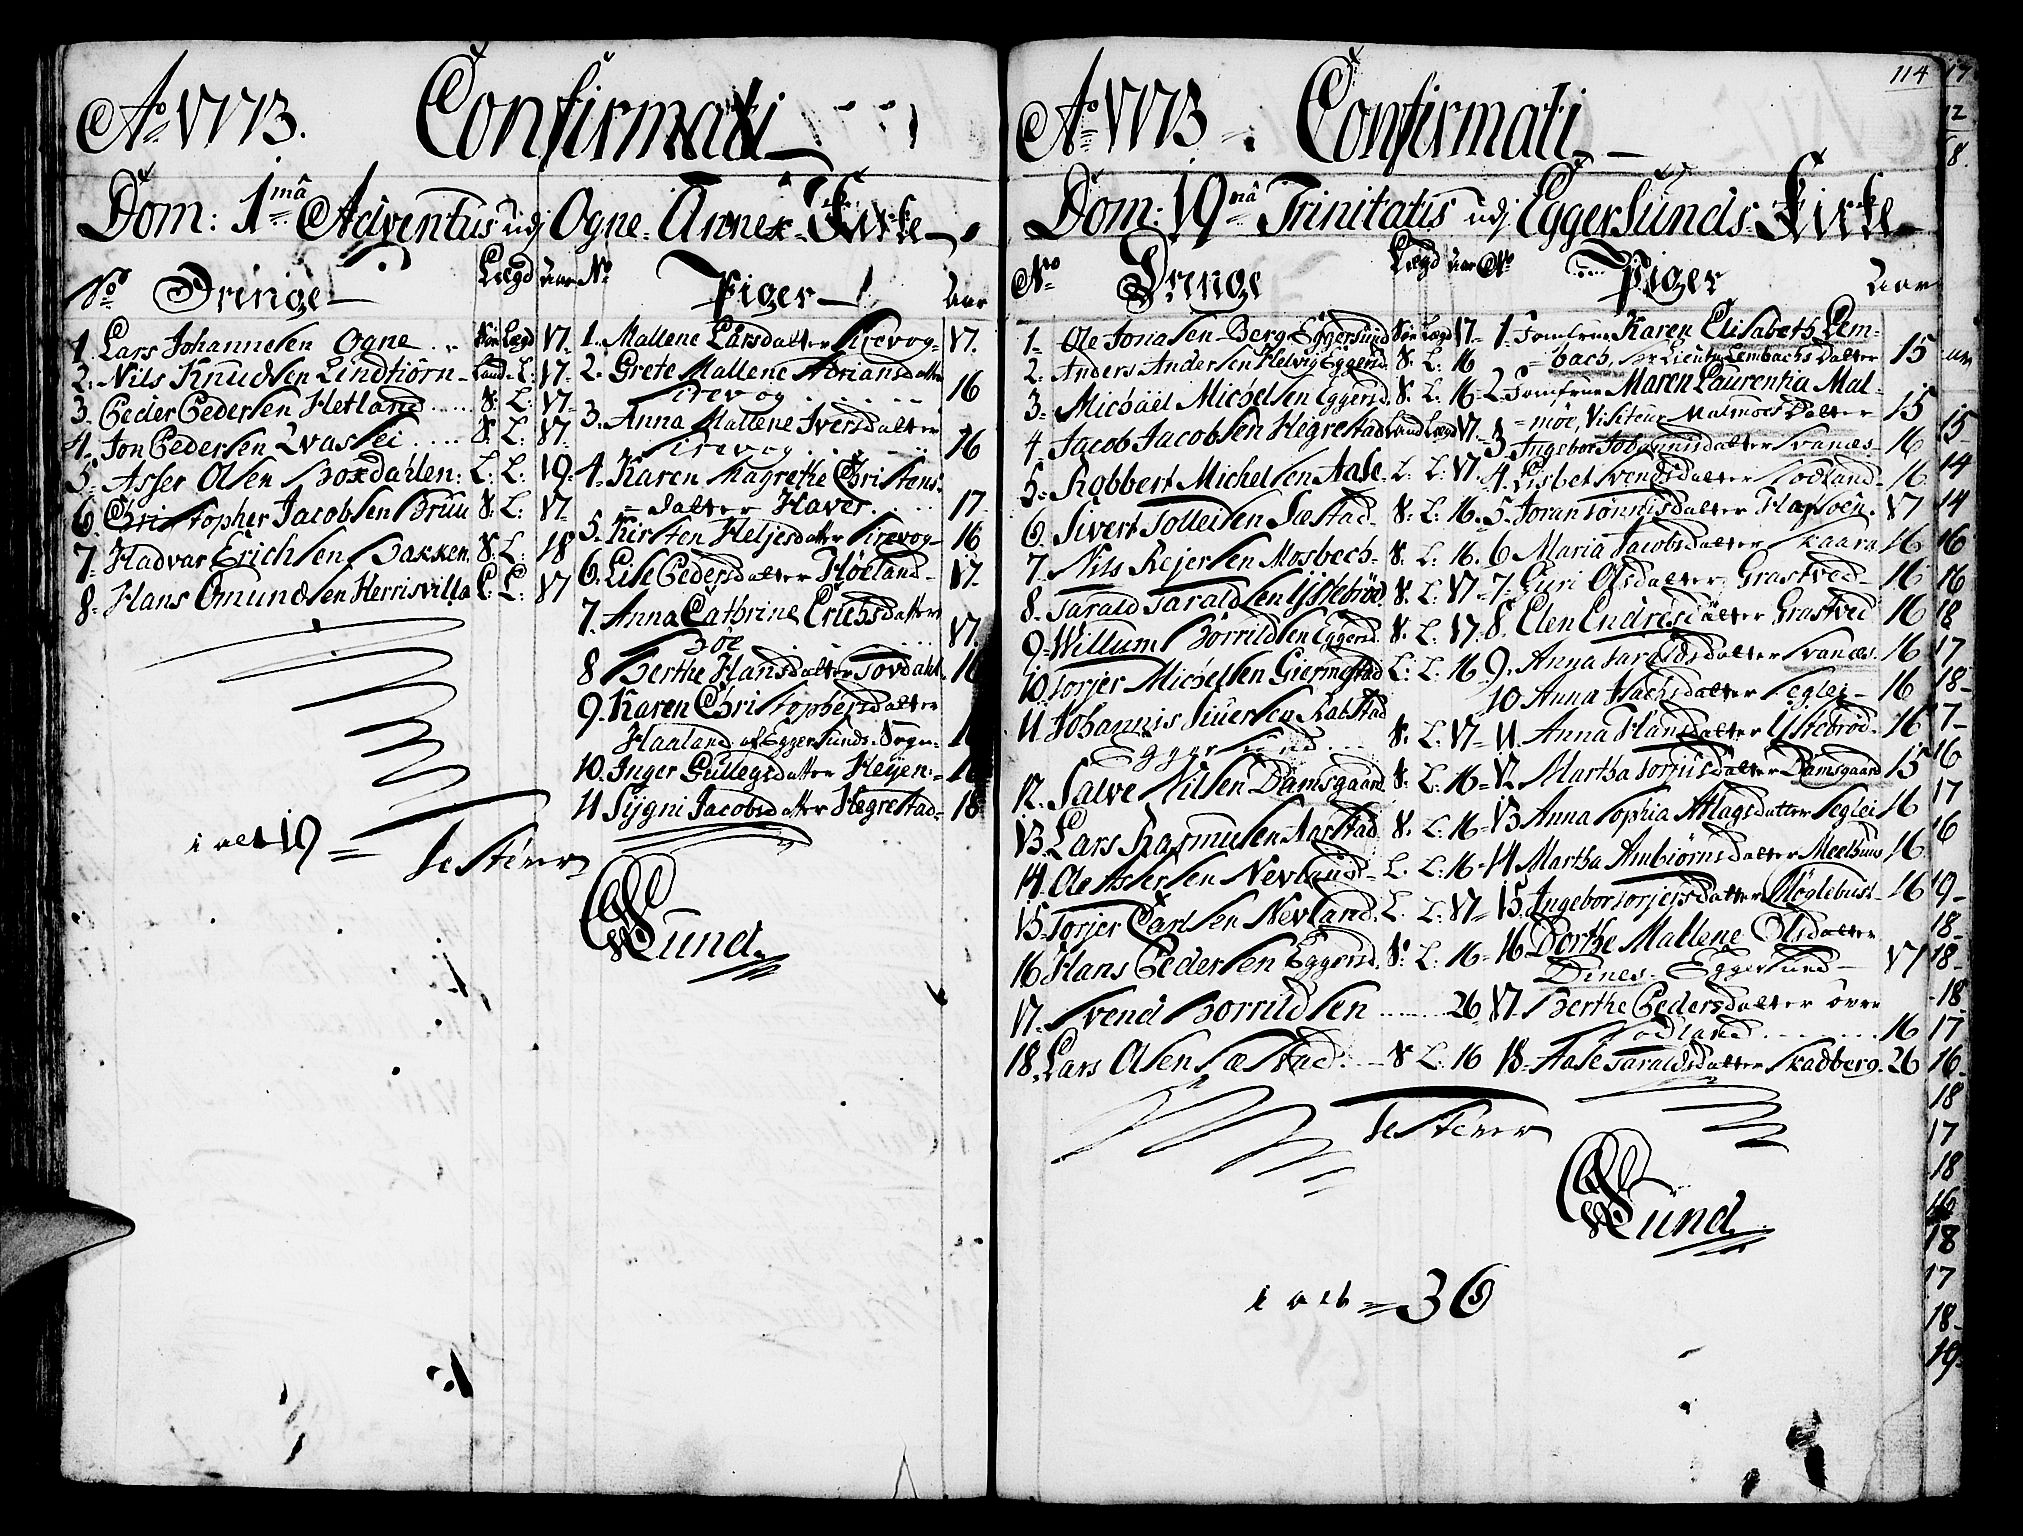 Ao 1773. Confirmati
Dom: 1mâ Adventus udj Ogne Annex Kirke
No Drenge Lægd aar No Piger aar
1. Lars Johannesen Ogne Søe Lægd 17.
2. Nils Knudsen Lindtiörn Land L: 17.
3. Peder Pedersen Hetland S. L: 17.
4. Jon Pedersen Qvaslei S. L: 17.
5. Asser Olsen Boxdahlen: L: L: 19.
6. Christopher Jacobsen Bruu S: L: 17.
7. Hadvar Erichsen Bakken. S: L: 18
8. Hans Omundsen Herrisvilla L: L: 17
i alt 19
testerer
1. Mallene Larsdatter Sirevog 17.
2. Grete Mallene Adriansdatter
Sirevog 16
3. Anna Mallene Iversdatter
Sirevog 16
4. Karen Magrethe Christens
datter Haver. 17.
5. Kirsten Heljesdatter Sirevog 16
6. Lise Pedersdatter Höeland 17.
7. Anna Cathrine Erichsdatter
Böe 17.
8 Berthe Hansdatter Tovdahl. 16
9. Karen Christophersdatter
Haaland af Eggersunds Sogn
10. Inger Gullegsdatter Heyen:
11 Sygni Jacobsdatter Hegrestad 18
Sund.
114
Ao 1773. Confirmati
Dom: 19nâ Trinitatis udj Eggersunds Kirke
No Drenge Lægd aar No Piger aar
1. Ole Jonasen Berg Eggersund Søe Lægd 17.
2. Anders Andersen Helvig Eggersd. S. L: 16
3. Michäel Michelsen Eggersd. S. L: 16
4. Jacob Jacobsen Hegrestad Land Lægd 17
5. Robbert Michelsen Aase L: L: 17.
6. Sivert Tollefsen Sæstad S. L: 16.
7. Nils Rejersen Mosbech S. L: 16.
8. Tarald Taraldsen Ystebröd S. L: 17
9. Willum Börrildsen Eggersd. S. L: 17.
10. Torjer Michelsen Giermestad L: L: 16
11 Johannis Siversen Rabstad
Eggersund S. L: 17
12. Salve Nilsen Damsgaard S. L: 16
13. Lars Rasmusen Aarstad S. L: 16
14. Ole Assersen Nevland L. L: 16
15. Torjer Carlsen Nevland. L. L: 17
16 Hans Pedersen Eggersd. S. L: 16
17. Svend Borrildsen 26
18. Lars Olsen Sæstad. S L: 16
1. Jomfrue Karen Elisabeth Lem-
bach, Sr Lieutn Lembachs datter 15
2. Jomfrue Maren Laurentia Mal-
möe, Visiteur Malmoes Datter 15
3 Ingebor Johannisdatter Svanæs 16
4. Lisbet Svendsdatter Sodland 16
5. Joran Tönnisdatter Hapsöen. 17
6 Maria Jacobsdatter Skaara 16
7. Guri Olsdatter Grastved 16
8. Elen Endresdatter Grastved 16
9. Anna Taraldsdatter Svanæs. 16
10 Anna Isachsdatter Seglei 16
11. Anna Hansdatter Ystebröd. 16
12 Martha Torjusdatter Damsgaard 15
13 Anna Sophia Atlagsdatter Seglei 16
14 Martha Ambiörnsdatter Meelhuus 16
15. Ingebor Torjersdatter Möglebust 16
16 Dorthe Mallene Olsdatter
Dines Eggersund 17
17 Berthe Pedersdatter över
Sodland 16
18 Aase Taraldsdatter Skadberg. 26
testerer
Sund.
i alt 36
17
12
8.
15
14
14
16
16
18
17
18
17
16
17
16
19
18
18
18
17
16
18
17
18
16
18
17
18
19